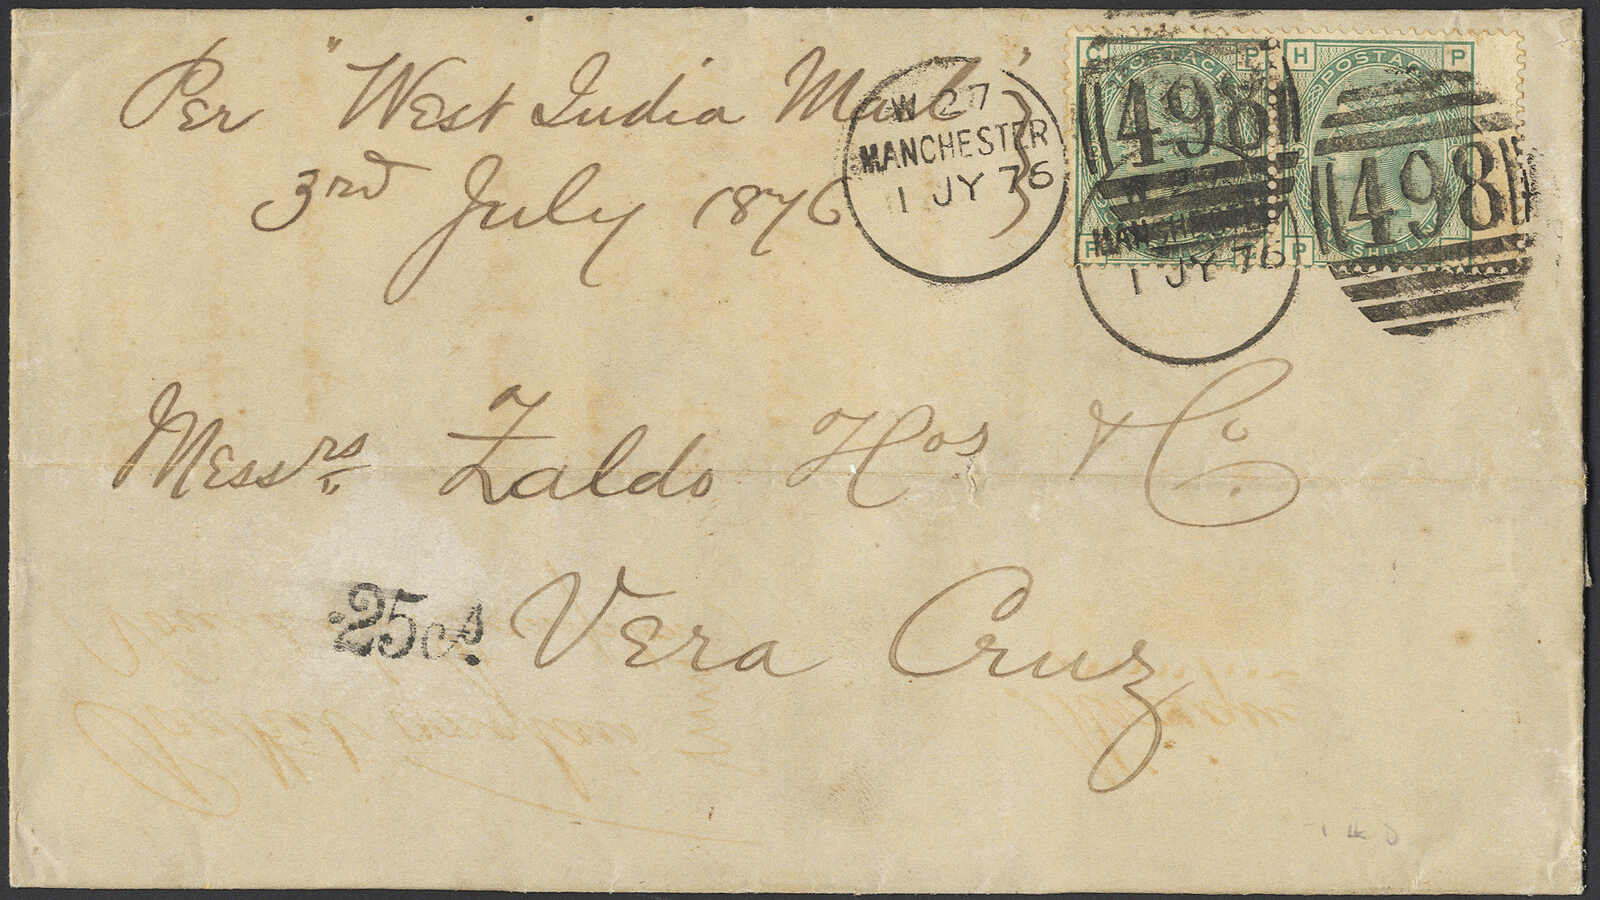 Per "West India Mail"
3rd July 1876
W 27
MANCHESTER
1 JY 76
498
W 27
MANCHESTER
1 JY 76
498
P
POSTAGE
H POSTAGE P
P SHILLING
Messrs Zaldo Hos & Co.
25cs.
Vera Cruz